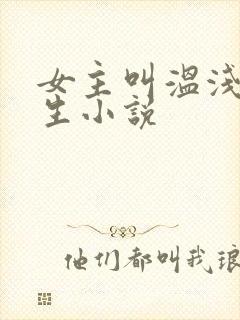 女主叫温浅
生小说
他们都叫我琅